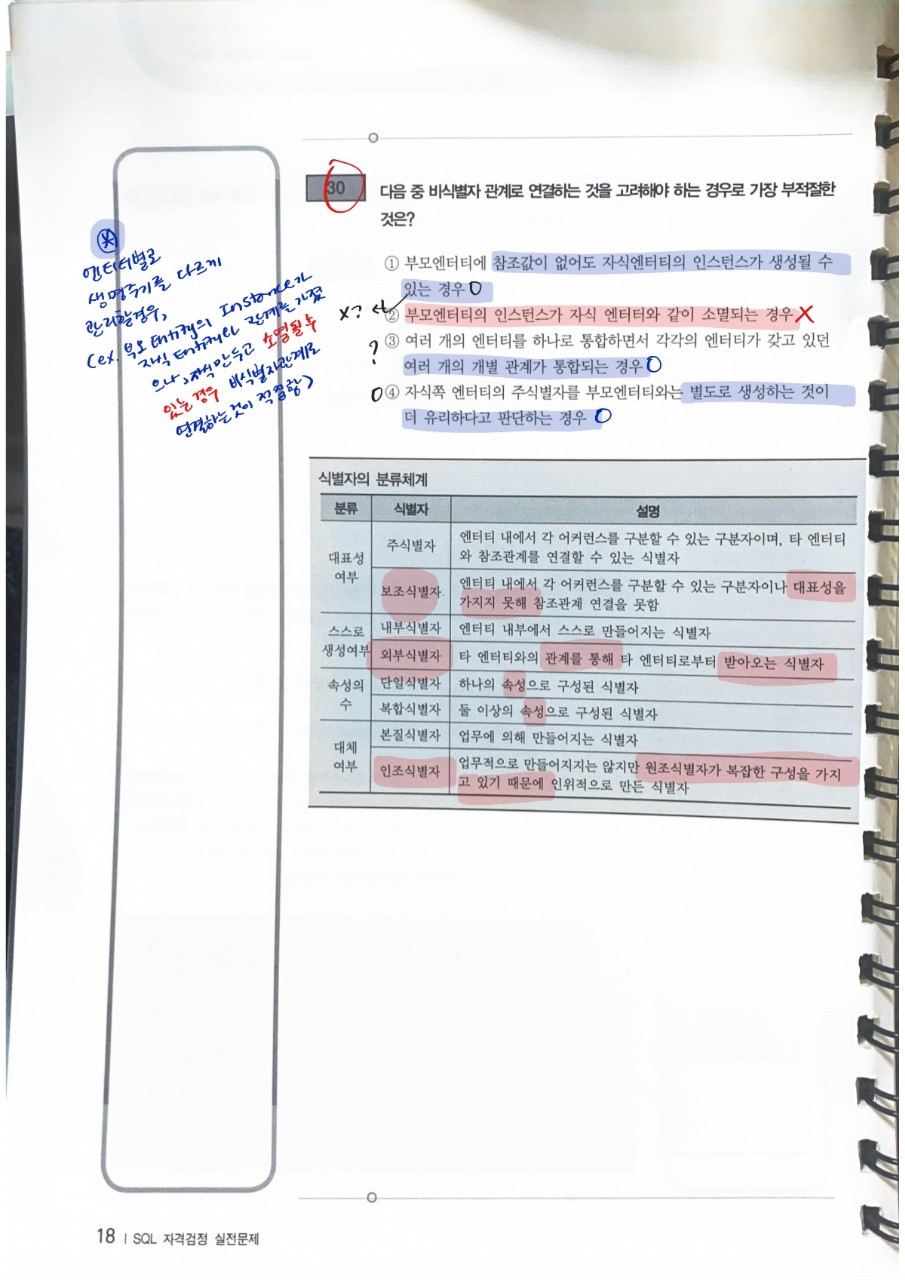 30 다음 중 비식별자 관계로 연결하는 것을 고려해야 하는 경우로 가장 부적절한
것은?
① 부모엔터티에 참조값이 없어도 자식엔터티의 인스턴스가 생성될 수
있는 경우 O
X? ② 부모엔터티의 인스턴스가 자식 엔터티와 같이 소멸되는 경우 X
? ③ 여러 개의 엔터티를 하나로 통합하면서 각각의 엔터티가 갖고 있던
여러 개의 개별 관계가 통합되는 경우 O
O ④ 자식쪽 엔터티의 주식별자를 부모엔터티와는 별도로 생성하는 것이
더 유리하다고 판단하는 경우 O
엔터티별로
생명주기를 다르게
관리할경우,
(ex. 부모 Entity의 Instance가
자식 Entity와 관계를 가졌
으나, 자식만두고 소멸될수
있는 경우 비식별자관계로
연결하는것이 적절함)
식별자의 분류체계
분류 식별자 설명
대표성
여부
주식별자 엔터티 내에서 각 어커런스를 구분할 수 있는 구분자이며, 타 엔터티
와 참조관계를 연결할 수 있는 식별자
보조식별자 엔터티 내에서 각 어커런스를 구분할 수 있는 구분자이나 대표성을
가지지 못해 참조관계 연결을 못함
스스로
생성여부
내부식별자 엔터티 내부에서 스스로 만들어지는 식별자
외부식별자 타 엔터티와의 관계를 통해 타 엔터티로부터 받아오는 식별자
속성의
수
단일식별자 하나의 속성으로 구성된 식별자
복합식별자 둘 이상의 속성으로 구성된 식별자
대체
여부
본질식별자 업무에 의해 만들어지는 식별자
인조식별자 업무적으로 만들어지지는 않지만 원조식별자가 복잡한 구성을 가지
고 있기 때문에 인위적으로 만든 식별자
18 | SQL 자격검정 실전문제